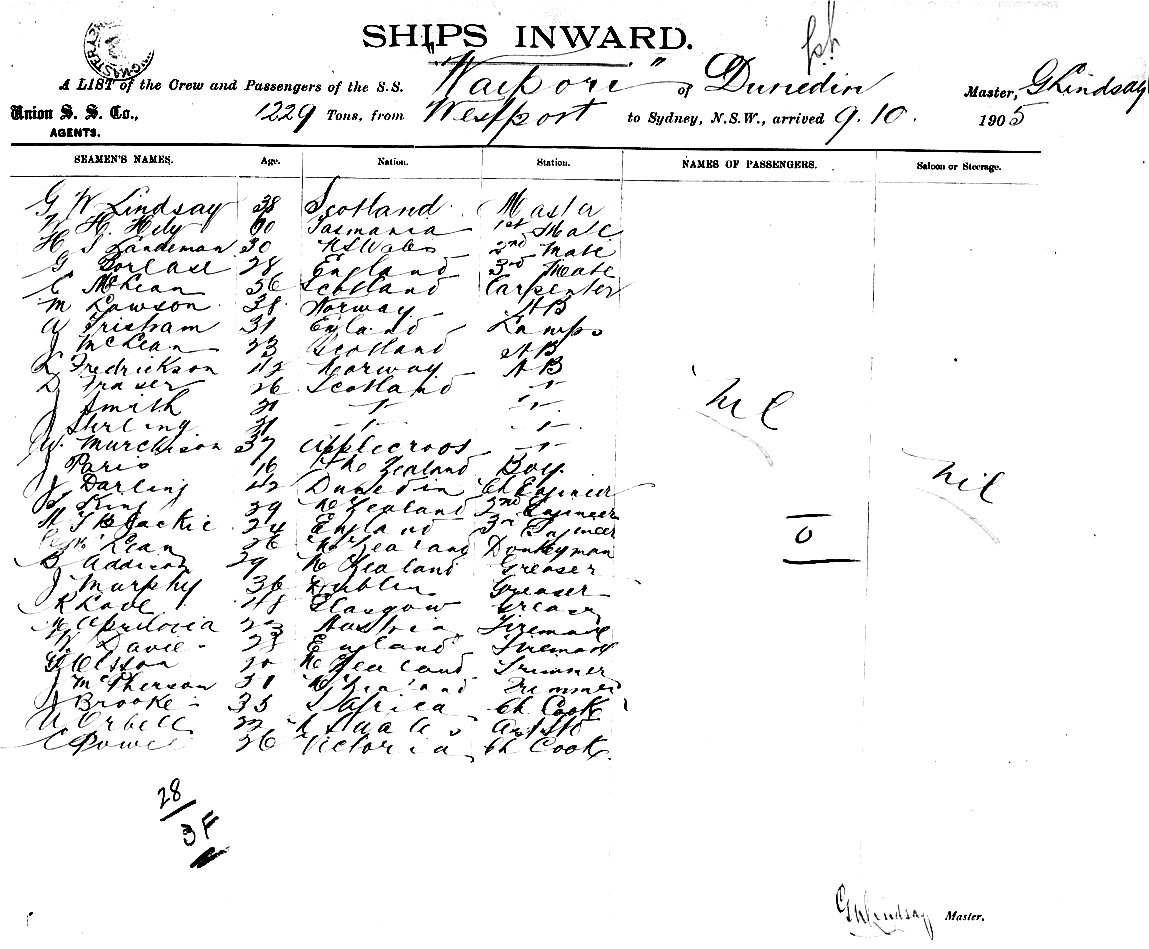 SHIPS INWARD.
A LIST of the Crew and Passengers of the S.S. "Waipori" of Dunedin Master, G Lindsay
Union S. S. Co., AGENTS. 1229 Tons, from Westport to Sydney, N.S.W., arrived 9.10. 1905
SEAMEN'S NAMES. Age. Nation. Station. NAMES OF PASSENGERS. Saloon or Steerage.
G W Lindsay 38 Scotland Master
H. Hely Tasmania 1st Mate
H S Landeman 30 NSWales 2nd Mate
G Borlase 28 England 3rd Mate
C McLean 36 Scotland Carpenter
M Lawson 38 Norway AB
A Trisham 31 England Lamps
J McLean 23 Scotland AB
L Fredrickson 42 Norway AB
D Fraser 26 Scotland
J Smith 21
J Stirling 31
W. Murchison 37 Applecross
J Paris 16 New Zealand Boy.
J Darling 42 Dunedin Ch Engineer
King 29 N Zealand 2nd Engineer
M 24 England 3rd Engineer
Lean 26 N Zealand Donkeyman
B Addison 29 N Zealand Greaser
J Murphy 36 Dublin Greaser
R Love 48 Glasgow Greaser
Austria Fireman
W Davie 23 England Fireman
G Olsson N Zealand Trimmer
J McPherson 31 N Zealand Trimmer
J Brooke 35 S Africa Ch Cook
Orbell 22
26 Victoria Ch Cook
Nil
Nil
0
28
3F
G W Lindsay Master.